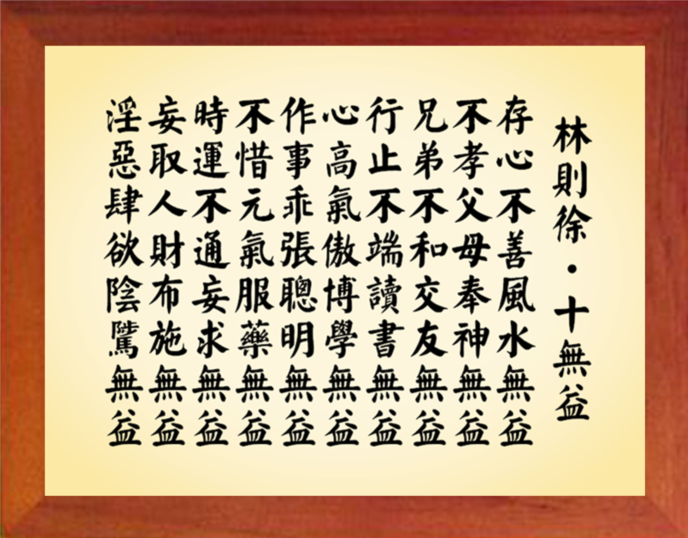 林則徐·十無益
存心不善風水無益
不孝父母奉神無益
兄弟不和交友無益
行止不端讀書無益
心高氣傲博學無益
作事乖張聰明無益
不惜元氣服藥無益
時運不通妄求無益
妄取人財布施無益
淫惡肆欲陰騭無益